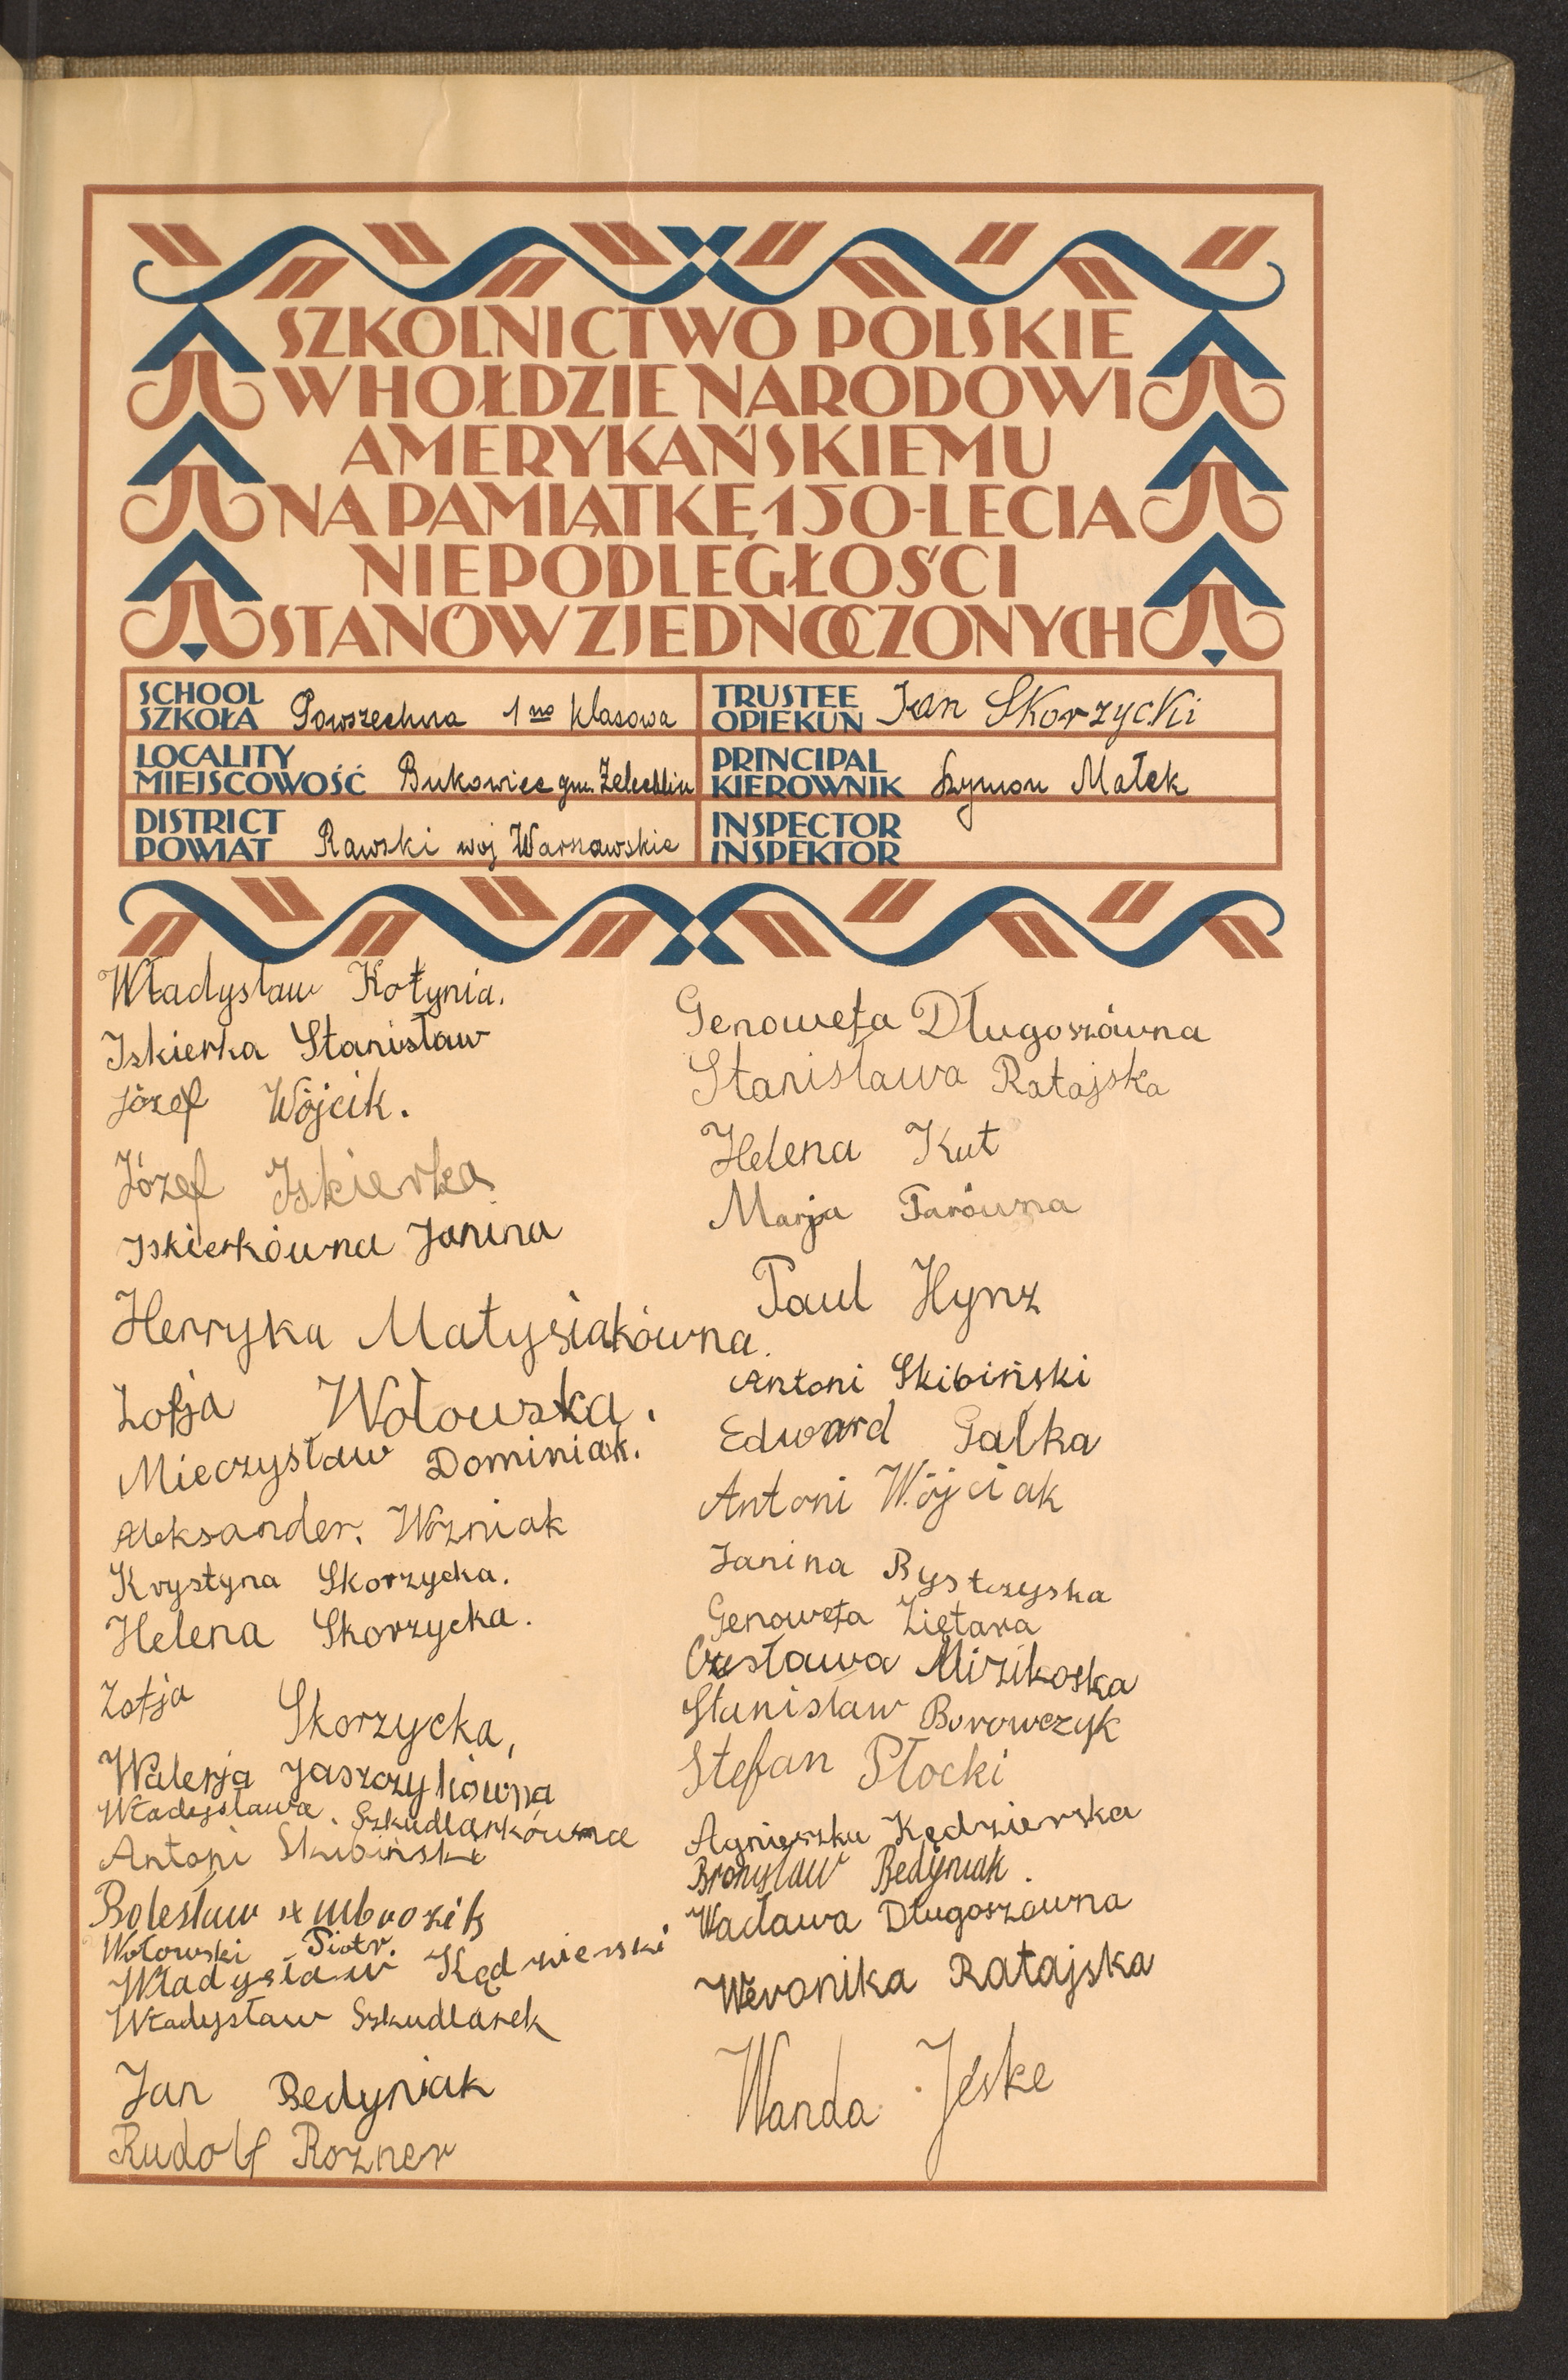 SZKOLNICTWO POLSKIE
W HOŁDZIE NARODOWI
AMERYKAŃSKIEMU
NA PAMIĄTKĘ 150-LECIA
NIEPODLEGŁOŚCI
STANÓW ZJEDNOCZONYCH
SCHOOL
SZKOŁA Powszechna 1 no klasowa
TRUSTEE
OPIEKUN Jan Skorzycki
LOCALITY
MIEJSCOWOŚĆ Bukowiec gm. Żelechlin
PRINCIPAL
KIEROWNIK Szymon Małek
DISTRICT
POWIAT Rawski woj Warszawskie
INSPECTOR
INSPEKTOR
Władysław Kołynia.
Iskierka Stanisław
Józef Wójcik.
Józef Iskierka
Iskierkówna Janina
Henryka Matysiakówna.
Zofja Wołowska.
Mieczysław Dominiak.
Aleksander. Wozniak
Krystyna Skorzycka.
Helena Skorzycka.
Zofja Skorzycka,
Walerja Jaszczykówna
Władysława. Szkudlarkówna
Antoni Skibiński
Bolesław Ambrozik
Wołowski Piotr.
Władysław Kędzierski
Władysław Szkudlarek
Jan Bedyniak
Rudolf Rozner
Genowefa Długoszówna
Stanisława Ratajska
Helena Kut
Marja Farówna
Paul Hynz
Antoni Skibiński
Edward Galka
Antoni Wójciak
Janina Bystrzyska
Genowefa Ziętara
Czesława Mizikoska
Stanisław Borowczyk
Stefan Płocki
Agnieszka Kędzierska
Bronisław Bedyniak.
Wacława Długoszowna
Weronika Ratajska
Wanda Jeske